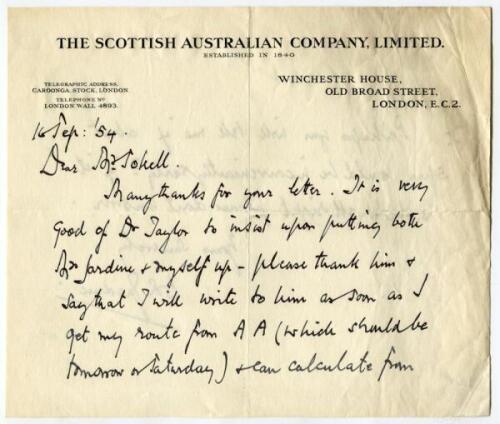 THE SCOTTISH AUSTRALIAN COMPANY, LIMITED.
ESTABLISHED IN 1840
TELEGRAPHIC ADDRESS,
CAROONGA, STOCK, LONDON
TELEPHONE No
LONDON WALL 4893.
WINCHESTER HOUSE,
OLD BROAD STREET,
LONDON, E.C.2.
16 Sep: '54.
Dear Mr
Many thanks for your letter. It is very
good of Dr Taylor to insist upon putting both
Mrs Jardine & myself up - please thank him &
say that I will write to him as soon as I
get my route from A A (which should be
tomorrow or Saturday) & can calculate from